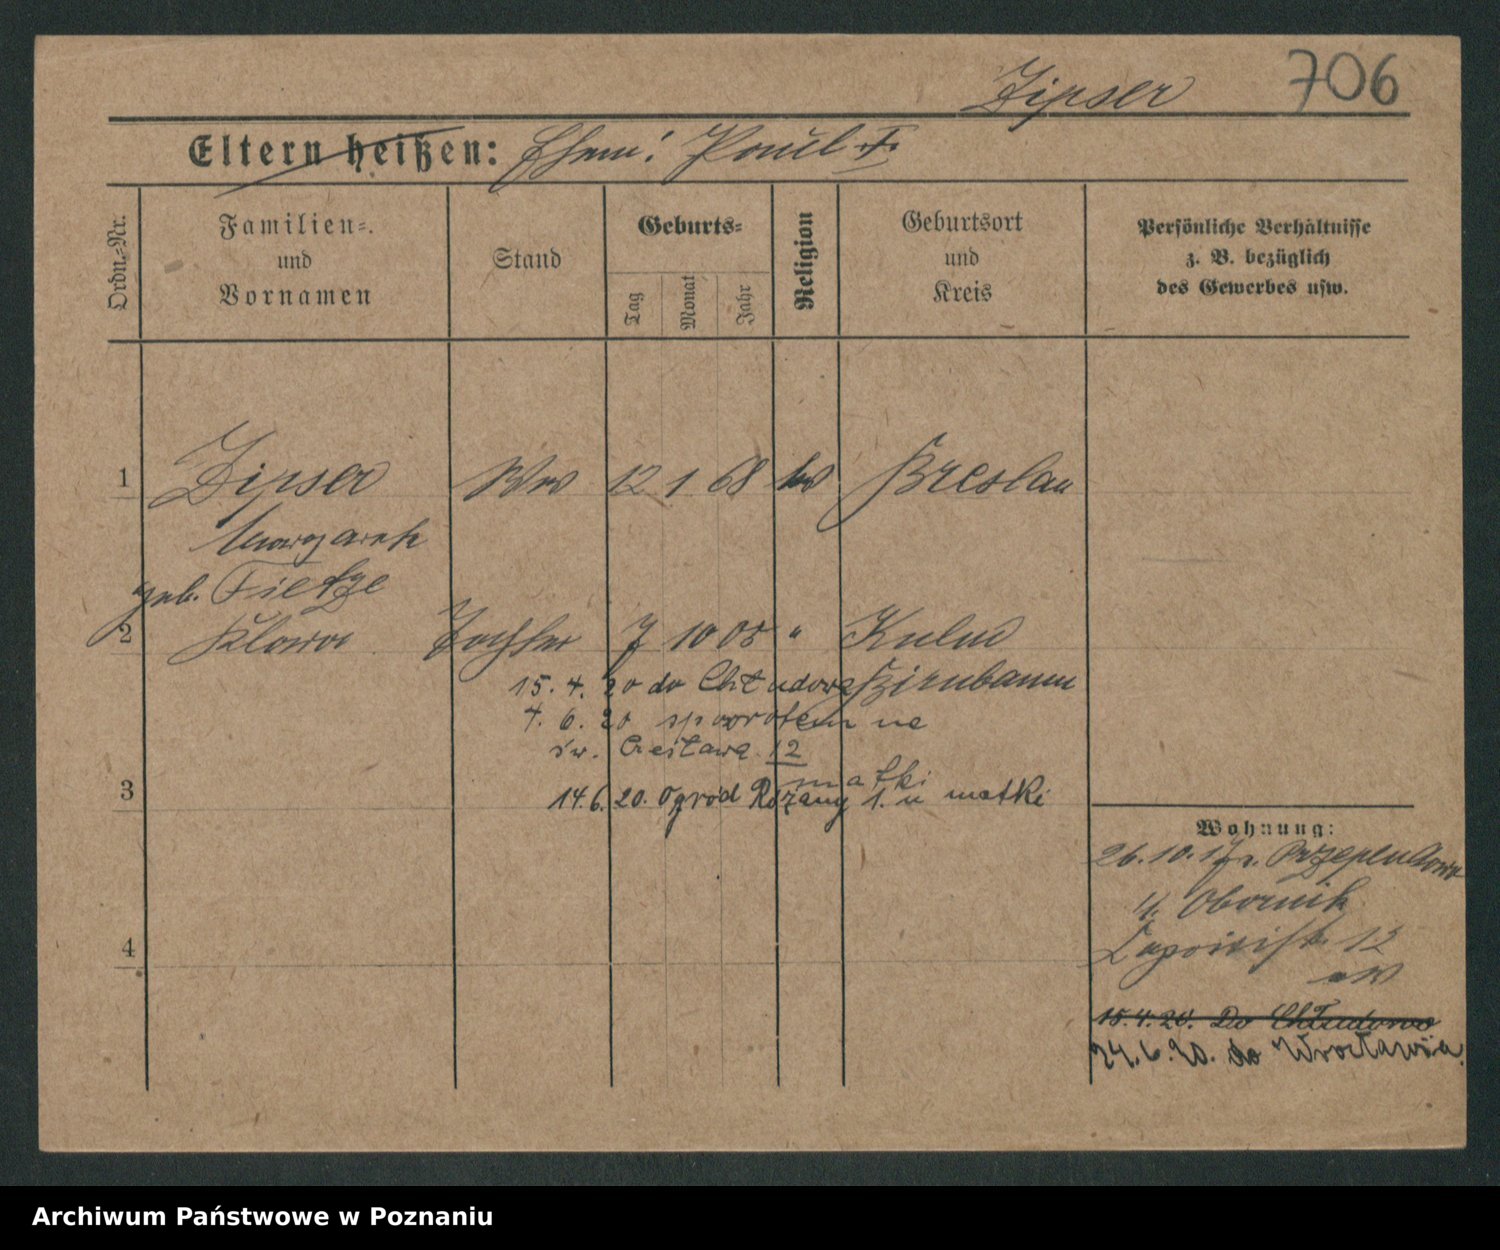 Zipser 706
Eltern heißen: Ehem: Paul †
Ordn.=Nr.
Familien=
und
Vornamen
Stand
Geburts=
Tag
Monat
Jahr
Religion
Geburtsort
und
Kreis
Persönliche Verhältnisse
z. B. bezüglich
des Gewerbes usw.
1 Zipser Ww 12 1 68 ev Breslau
Margareth
geb. Tietze
2 Klara Tochter 7 10 05 " Kulm
15. 4. 20 do Chłudowa Birnbaum
4. 6. 20 spowrotem na
św. Czesława 12
matki
3 14.6.20. Ogród Różany 1. u matki
4
Wohnung:
26.10.17 v. Przependowo
Kr. Obornik
12
15.4.20. Do Chłudowo
24.6.20. do Wrocławia.
Archiwum Państwowe w Poznaniu